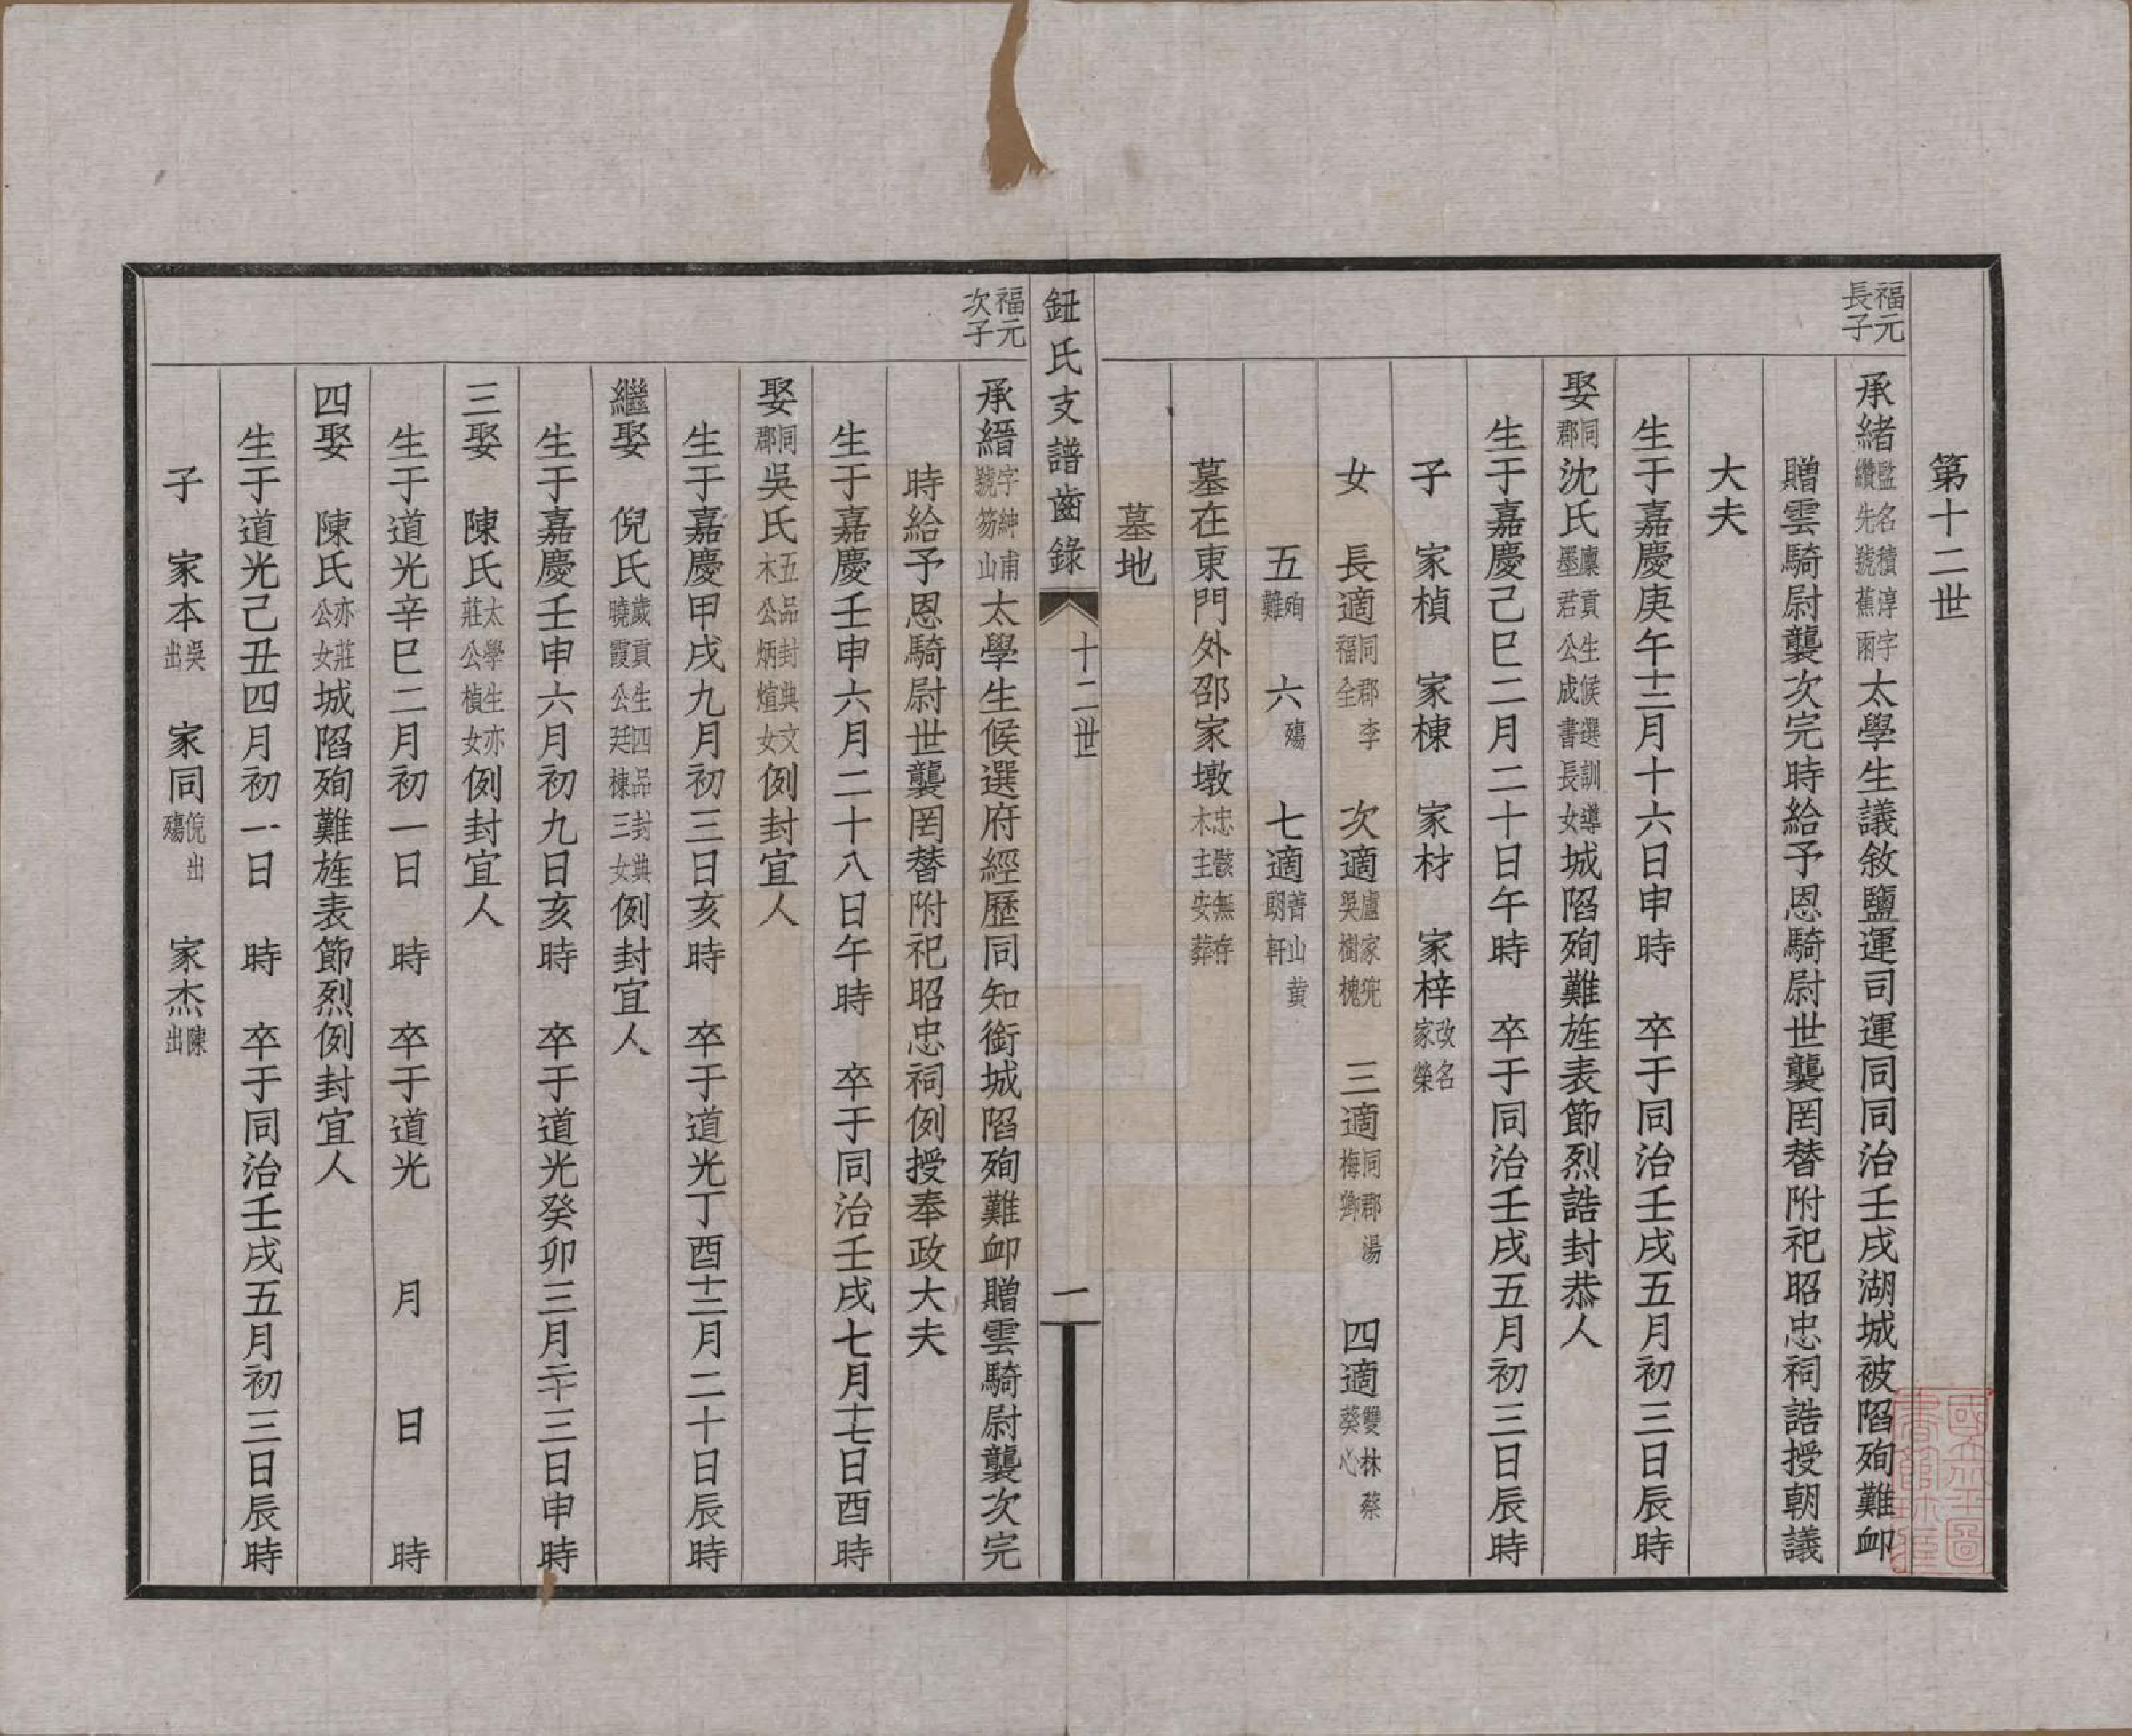 第十二世
福元長子
承緒監名積淳字纘先號蕉雨太學生議敘鹽運司運同同治壬戌湖城被陷殉難卹
贈雲騎尉襲次完時給予恩騎尉世襲罔替附祀昭忠祠誥授朝議
大夫
生于嘉慶庚午十二月十六日申時　卒于同治壬戌五月初三日辰時
娶同郡沈氏廩貢生候選訓導墨君公成書長女城陷殉難旌表節烈誥封恭人
生于嘉慶己巳二月二十日午時　卒于同治壬戌五月初三日辰時
子　家楨　家棟　家材　家梓改名家榮
女　長適同郡李福全　次適盧家兜吳樹槐　三適同郡湯梅卿　四適雙林蔡葵心
五殉難　六殤　七適菁山黄朗軒
墓在東門外邵家墩忠骸無存木主安葬
墓地
鈕氏支譜齒錄　十二世　一
福元次子
承縉字紳甫號笏山太學生候選府經歷同知銜城陷殉難卹贈雲騎尉襲次完
時給予恩騎尉世襲罔替附祀昭忠祠例授奉政大夫
生于嘉慶壬申六月二十八日午時　卒于同治壬戌七月十七日酉時
娶同郡吳氏五品封典文木公炳煊女例封宜人
生于嘉慶甲戌九月初三日亥時　卒于道光丁酉十二月二十日辰時
繼娶　倪氏歲貢生四品封典曉霞公廷棟三女例封宜人
生于嘉慶壬申六月初九日亥時　卒于道光癸卯三月二十三日申時
三娶　陳氏太學生亦莊公楨女例封宜人
生于道光辛巳二月初一日　時　卒于道光　月　日　時
四娶　陳氏亦莊公女城陷殉難旌表節烈例封宜人
生于道光己丑四月初一日　時　卒于同治壬戌五月初三日辰時
子　家本吳出　家同倪出殤　家杰陳出